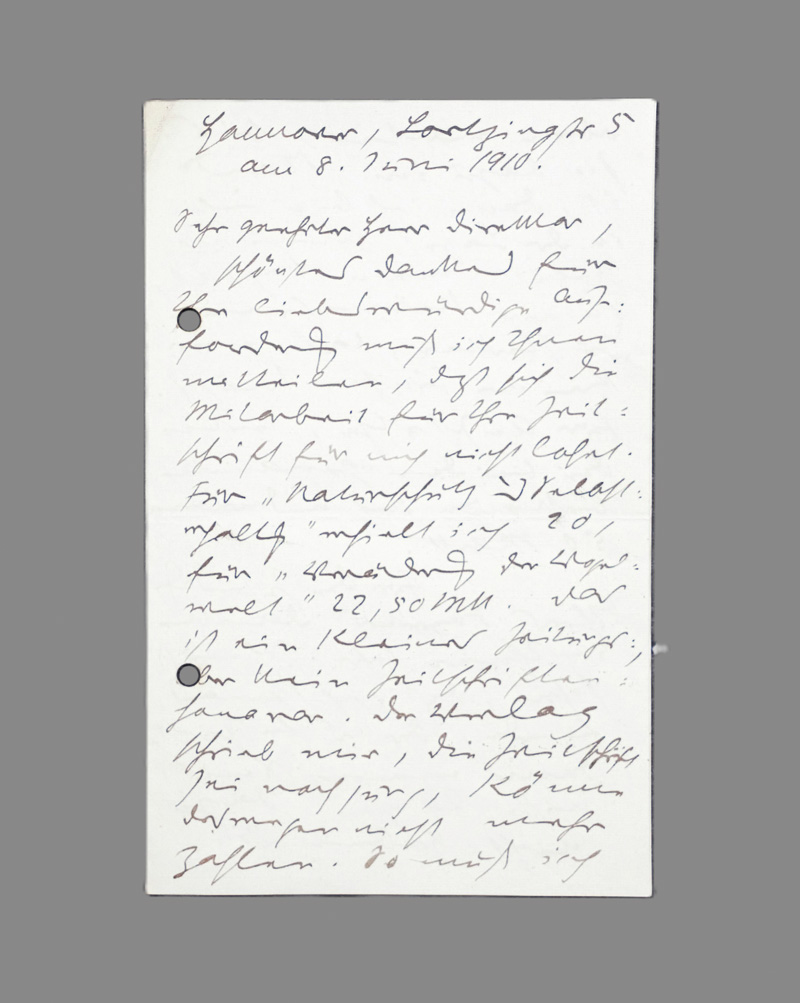 Hannover, Lortzingstr 5
am 8. Juni 1910.
Sehr geehrter Herr Direktor,
schönsten Dank für
Ihre liebenswürdige Auf-
forderung muß ich Ihnen
mitteilen, daß sich die
Mitarbeit für Ihre Zeit-
schrift für mich nicht lohnt.
Für „Naturschutz
erhielt ich 20,
für „Veränderung der Vogel-
welt" 22,50 Mk. Das
ist ein kleines Zeitungs-,
aber kein Zeitschriften-
honorar. Der Verlag
schrieb mir, die Zeitschrift
sei noch jung, könne
deswegen nicht mehr
zahlen. So muß ich